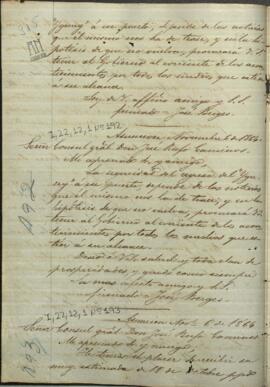 Ygurey" á ese puerto, depende de las noticias
que el mismo nos ha de traer, y en la hi-
pótesis de que no vuelva, procurará
tener al Gobierno al corriente de los acon-
tecimientos por todos los medios que estén
á su alcance.
Soy de V. affmo amigo y S. S.
firmado José Berges.
I,22,12,1 Nº192
Asuncion Noviembre 6 de 1864.
Señor Consul gral. Don José Rufo Caminos.
Mi apreciado
La seguridad del regreso del "Ygu-
rey" á ese puerto, depende de las noticias
que el mismo nos ha de traer, y en la
hipótesis de que no vuelva, procurará
tener al Gobierno al corriente de los acon-
tecimientos por todos los medios que es-
tén á su alcance.
Deseo á Vd. salud y toda clase de
prosperidades y quedo como siempre
Su mas afecto amigo y S. S.
firmado José Berges.
I,22,12,1 Nº193
Asuncion Nov. 6 de 1864
Señor Consul gral. Don José Rufo Caminos
Mi apreciado
He tenido el placer de recibir su
muy estimada de 18 de Octubre ppdo
192
193